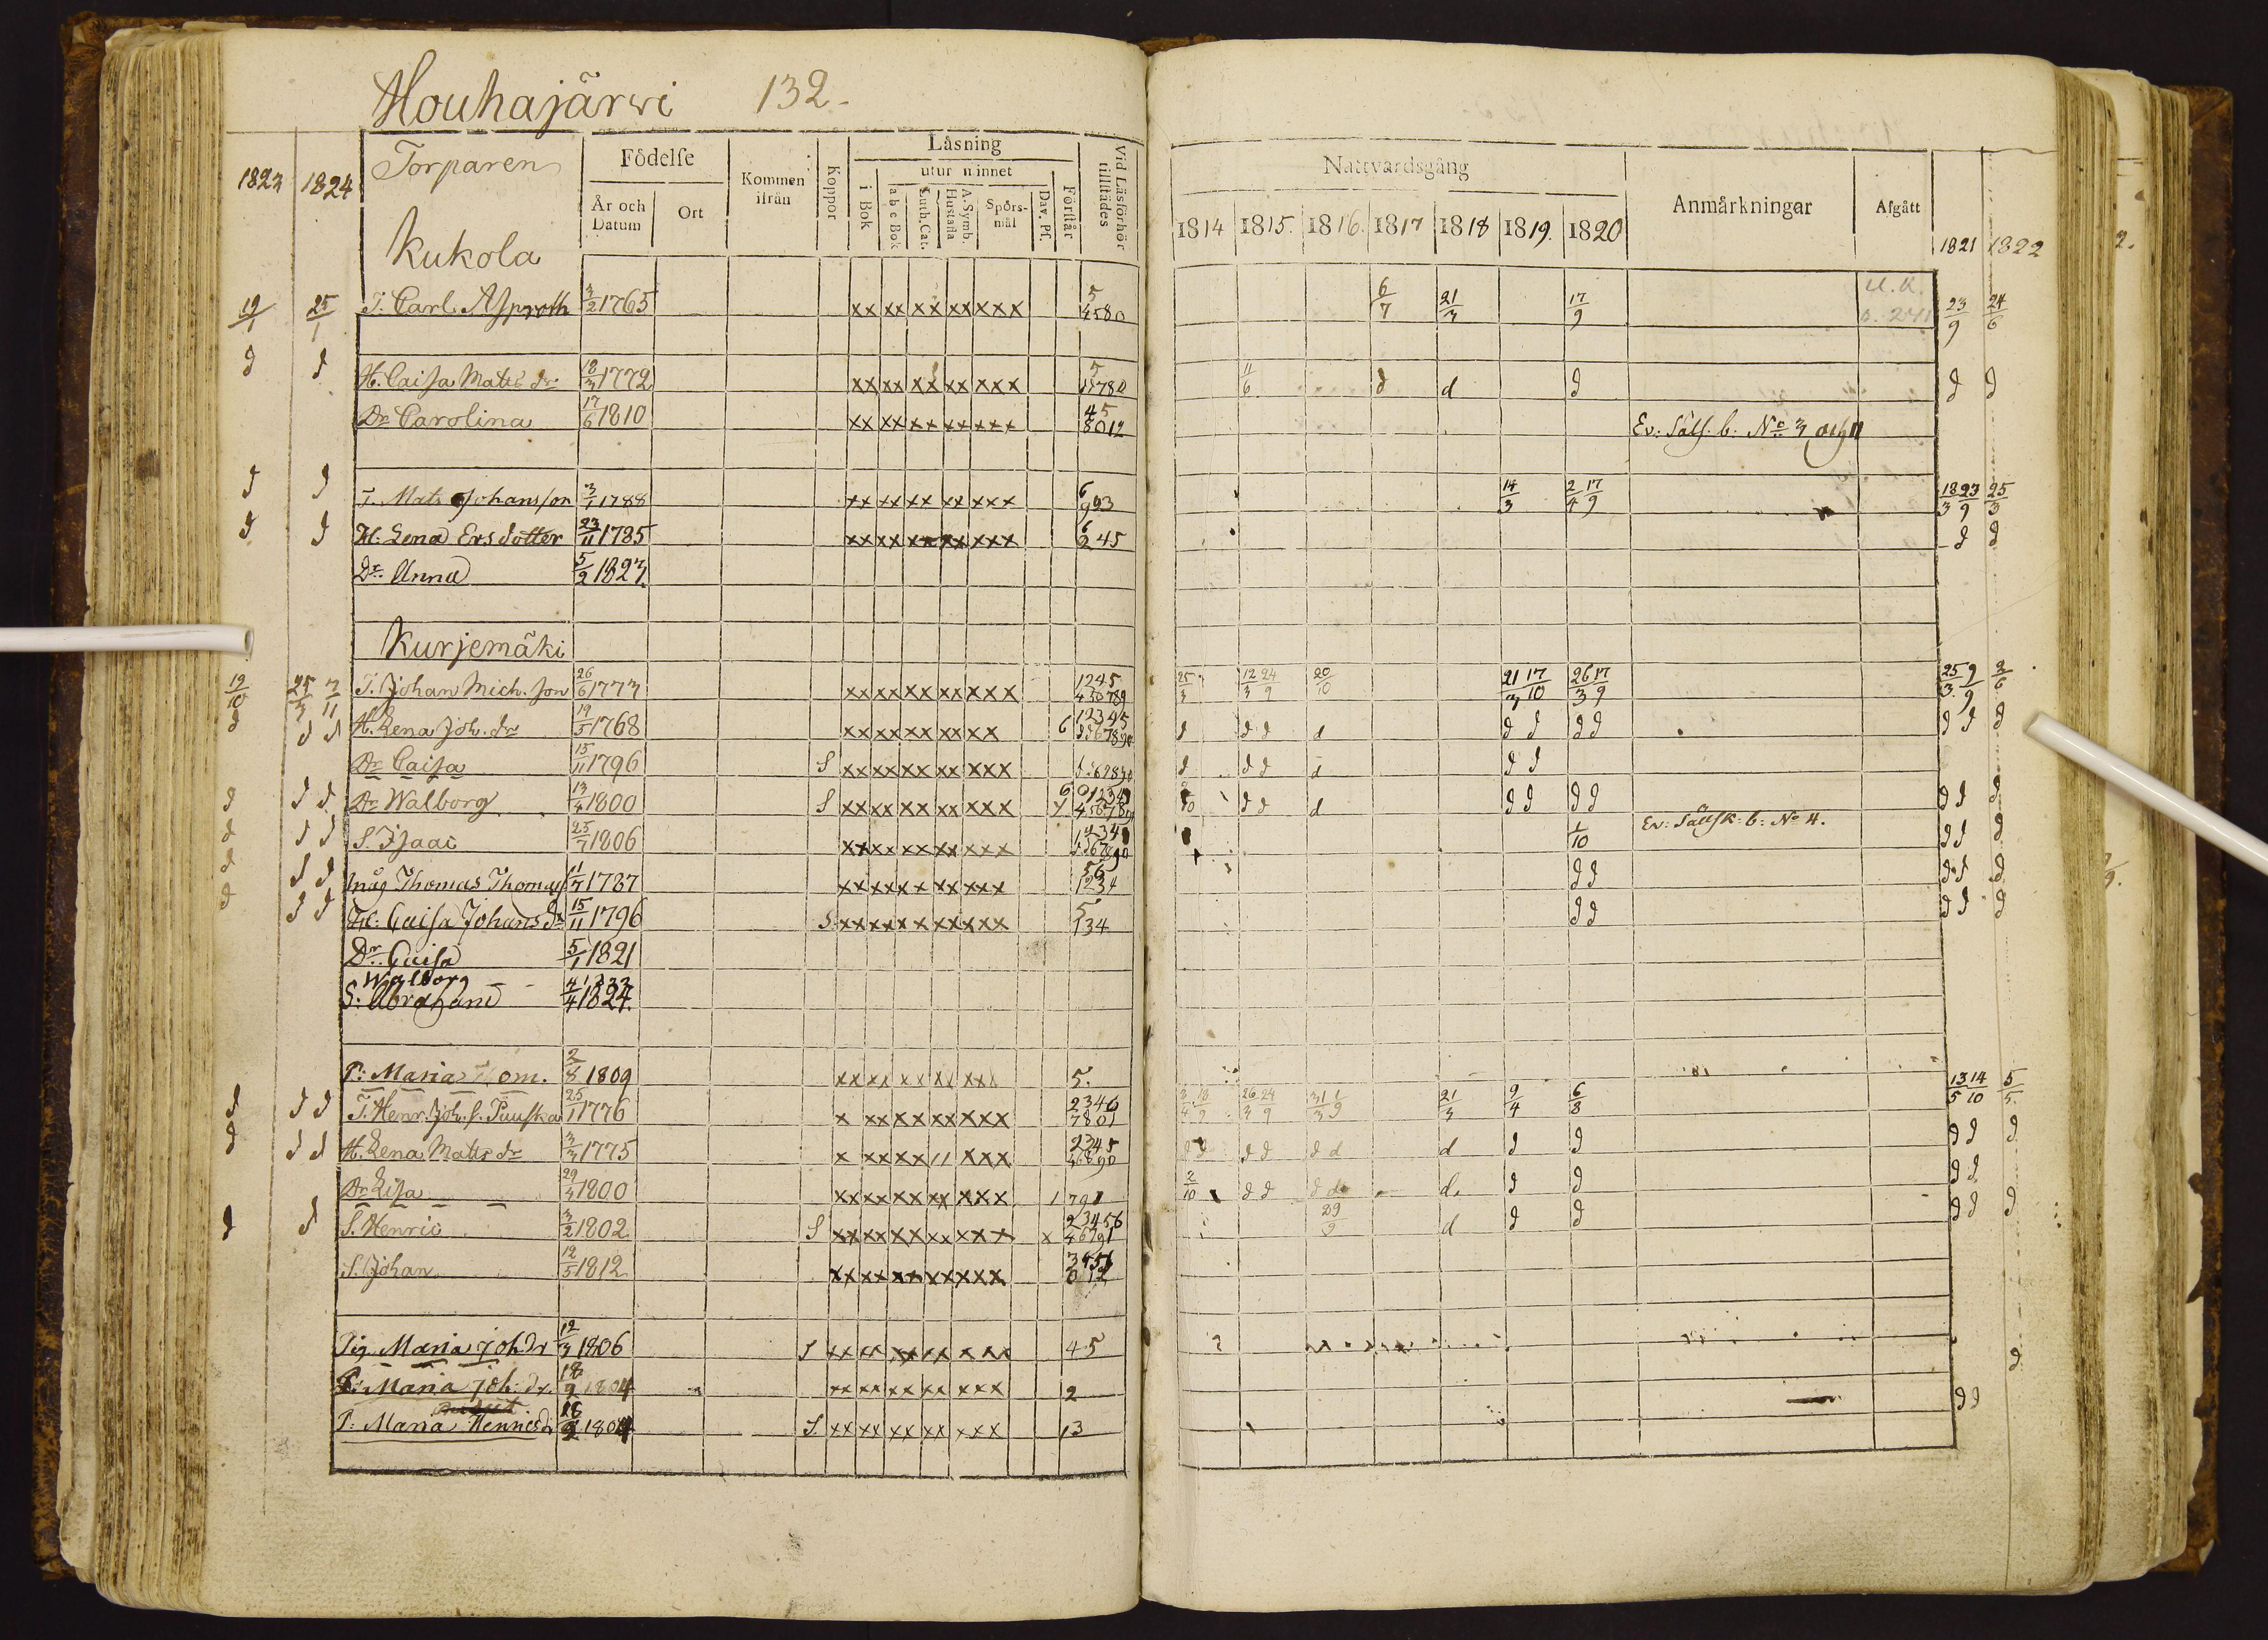 Houhajärwi 132.
1823 1824 Torparen Födelse Kommen ifrån Koppor Läsning Vid Läsförhör tillstädes
utur minnet
År och Datum Ort i Bok a b c Bok Luth. Cat. A. Symb. Hustafla Spörs-mål Dav. Ps. Förstår
Nattvardsgång Anmärkningar Afgått
1814 1815. 1816. 1817 1818 1819. 1820 1821 1822
Kukola
19/1 25/1 T. Carl Asproth 3/2 1765 xx xx xx xx xxx 5 4580 6/7 21/3 17/9 23/9 24/6
d d H. Caisa Mats dr 18/3 1772 xx xx xx xx xxx 5 11/6 d d d d d
Dr Carolina 17/6 1810 xx xx xx xx xxx 45 8012 Ev: Sälsk. b: No 3 och 11
d d T. Mats Johansson 3/1 1788 xx xx xx xx xxx 6 993 14/3 2/4 17/9 18/3 23/9 25/3
d d H. Lena Ersdotter 23/11 1785 xx xx xx xx xxx 6 245 d d
Dr. Anna 5/2 1823.
Kurjemäki
19/10 25/3 7/11 T. Johan Mich. son 26/6 1773 xx xx xx xx xxx 1245 25/3 12/3 24/9 20/10 21/3 17/10 26/3 17/9 25/3 9/9 2/6
d d d H. Lena Joh. dr 19/5 1768 xx xx xx xx xx 6 12345 d d d d d d d d d d d
Dr Caisa 15/11 1796 S xx xx xx xx xxx d d d d d d
d d d Dr Walborg 13/4 1800 S xx xx xx xx xxx d d d d d d d d d d
d d d S. Isaac 25/7 1806 xx xx xx xx xxx 1/10 Ev: Sällsk: b: No 4. d d d
d d d Inåg Thomas Thomass 11/7 1787 xx xx xx xx xxx 56 1234 d d d d d
d d d H: Caisa Johans dr 15/11 1796 S. xx xx xx xx xxx 5 134 d d d d d
Dr. Caisa 5/1 1821
Walborg
S: Abraham 4/4 1824.
P: Maria Tom. 2/8 1809 xx xx xx xx xxx 5.
d d d T. Henr. Joh. s. Puuska 25/1 1776 x xx xx xx xxx 2346 7801 26/3 24/9 31/3 1/9 21/3 9/4 6/8 13/5 14/10 5/5
d d d H. Lena Matts dr 3/3 1775 x xx xx 11 xxx 2345 d d d d d d d d d d d d
Dr Lisa 29/4 1800 xx xx xx xx xxx 1 791 2/10 d d d d d. d d d d
d d S. Henric 3/2 1802 S xx xx xx xx xxx x 23456 29/9 d d d d d d
S. Johan 12/5 1812 xx xx xx xx xxx 3456 012
Pig. Maria Joh. dr 12/3 1806 S xx xx xx xx xxx 45
P: Maria Joh: dr. 18/9 1804 xx xx xx xx xxx 2 d
P: Maria Henricsdr 18/9 1804 S. xx xx xx xx xxx 13 d d